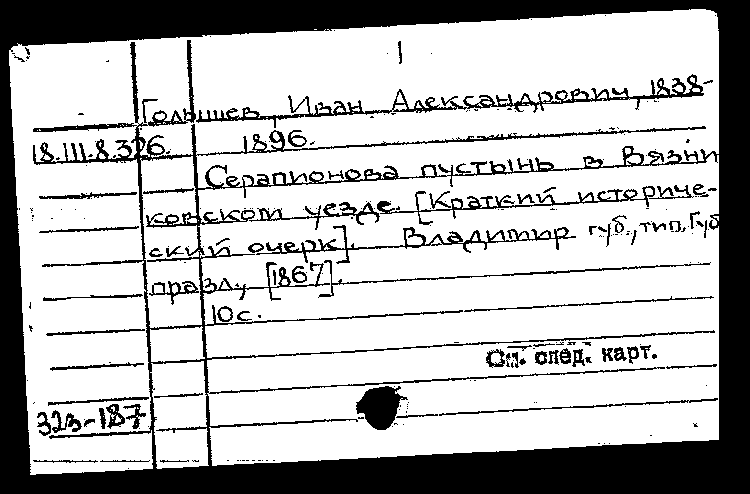 1
Голышев, Иван Александрович, 1838-
18.III.8.326. 1896.
Серапионова пустынь в Вязни
ковском уезде. [Краткий историче-
ский очерк]. Владимир губ., тип. Губ
правл., [1867].
10 с.
См. след. карт.
323-187